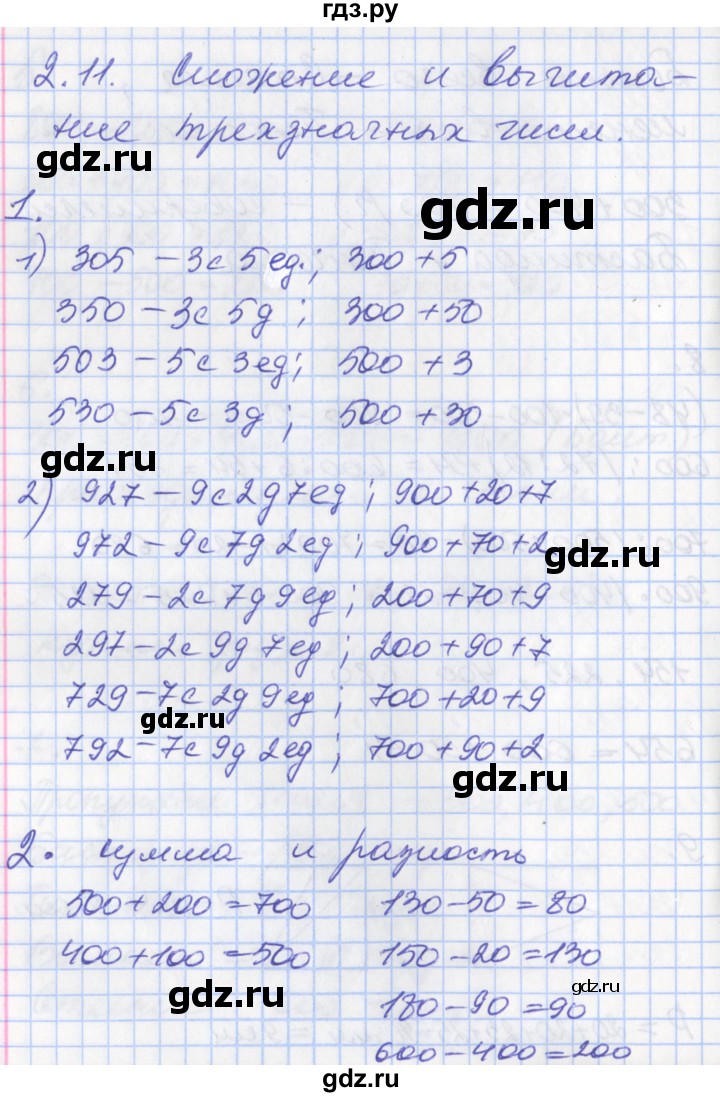 гдз.ру
2.11. Сложение и вычита-
ние трехзначных чисел.
gdz.ru
gdz.ru
1.
1) 305 – 3с 5ед.; 300+5
350 – 3с 5д; 300+50
503 – 5с 3ед; 500+3
530 – 5с 3д; 500+30
gdz.ru
gdz.ru
2) 927 – 9с 2д 7ед; 900+20+7
972 – 9с 7д 2ед; 900+70+2
gdz.ru
279 – 2с 7д 9ед; 200+70+9
297 – 2с 9д 7ед; 200+90+7
729 – 7с 2д 9ед; 700+20+9
gdz.ru
792 – 7с 9д 2ед; 700+90+2
gdz.ru
2. сумма и разность
500+200=700 130-50=80
400+100=500 150-20=130
gdz.ru
gdz.ru
180-90=90
600-400=200
gdz.ru